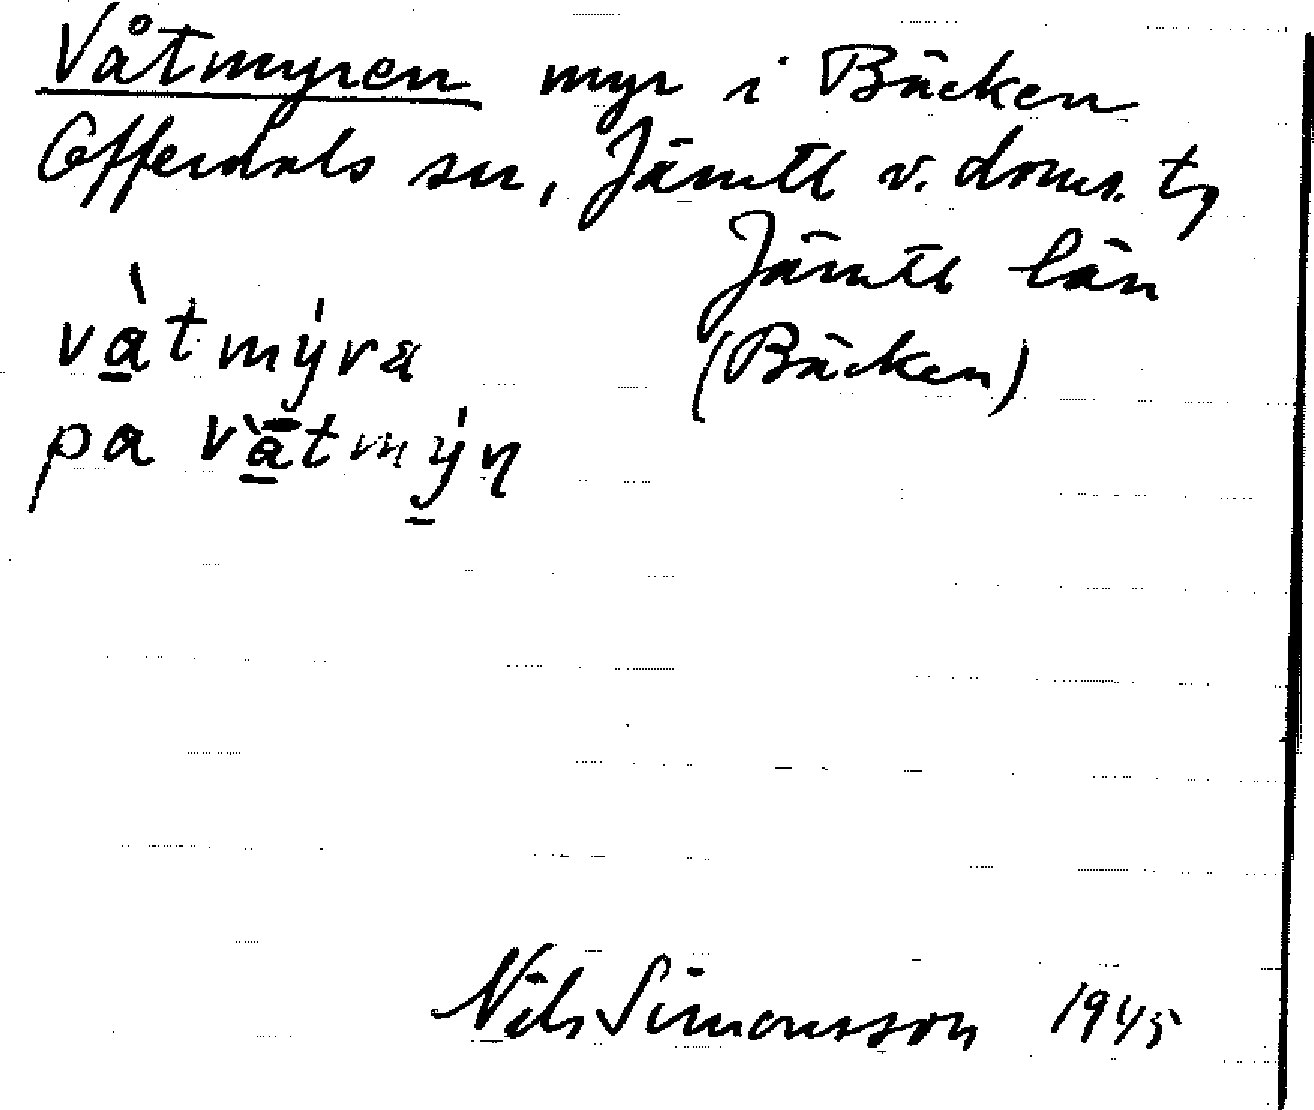 Våtmyren myr i Bäcken
Offerdals sn, Jämtl v. doms. t,
Jämtl län
(Bäcken)
và̱tmýra
pa và̱tmý̱n
Nils Simonsson 1945